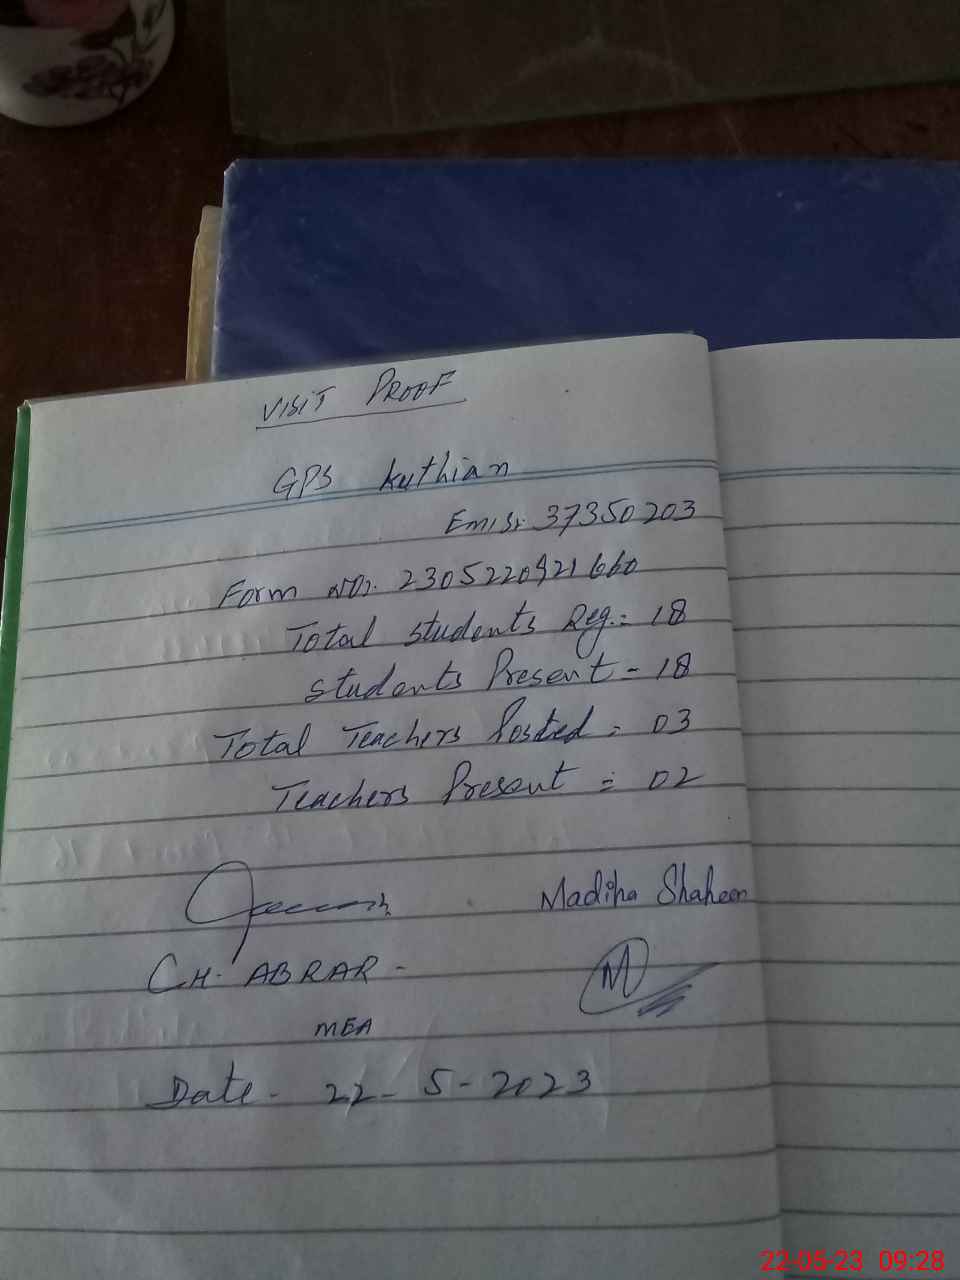 VISIT PROOF
GPS Kuthian
Emis: 37350203
Form No:. 2305220921660
Total students Reg.= 18
students Present - 18
Total Teachers Posted = 03
Teachers Present = 02
Madiha Shaheen
CH. ABRAR -
M
MEA
Date - 22-5-2023
22-05-23 09:28